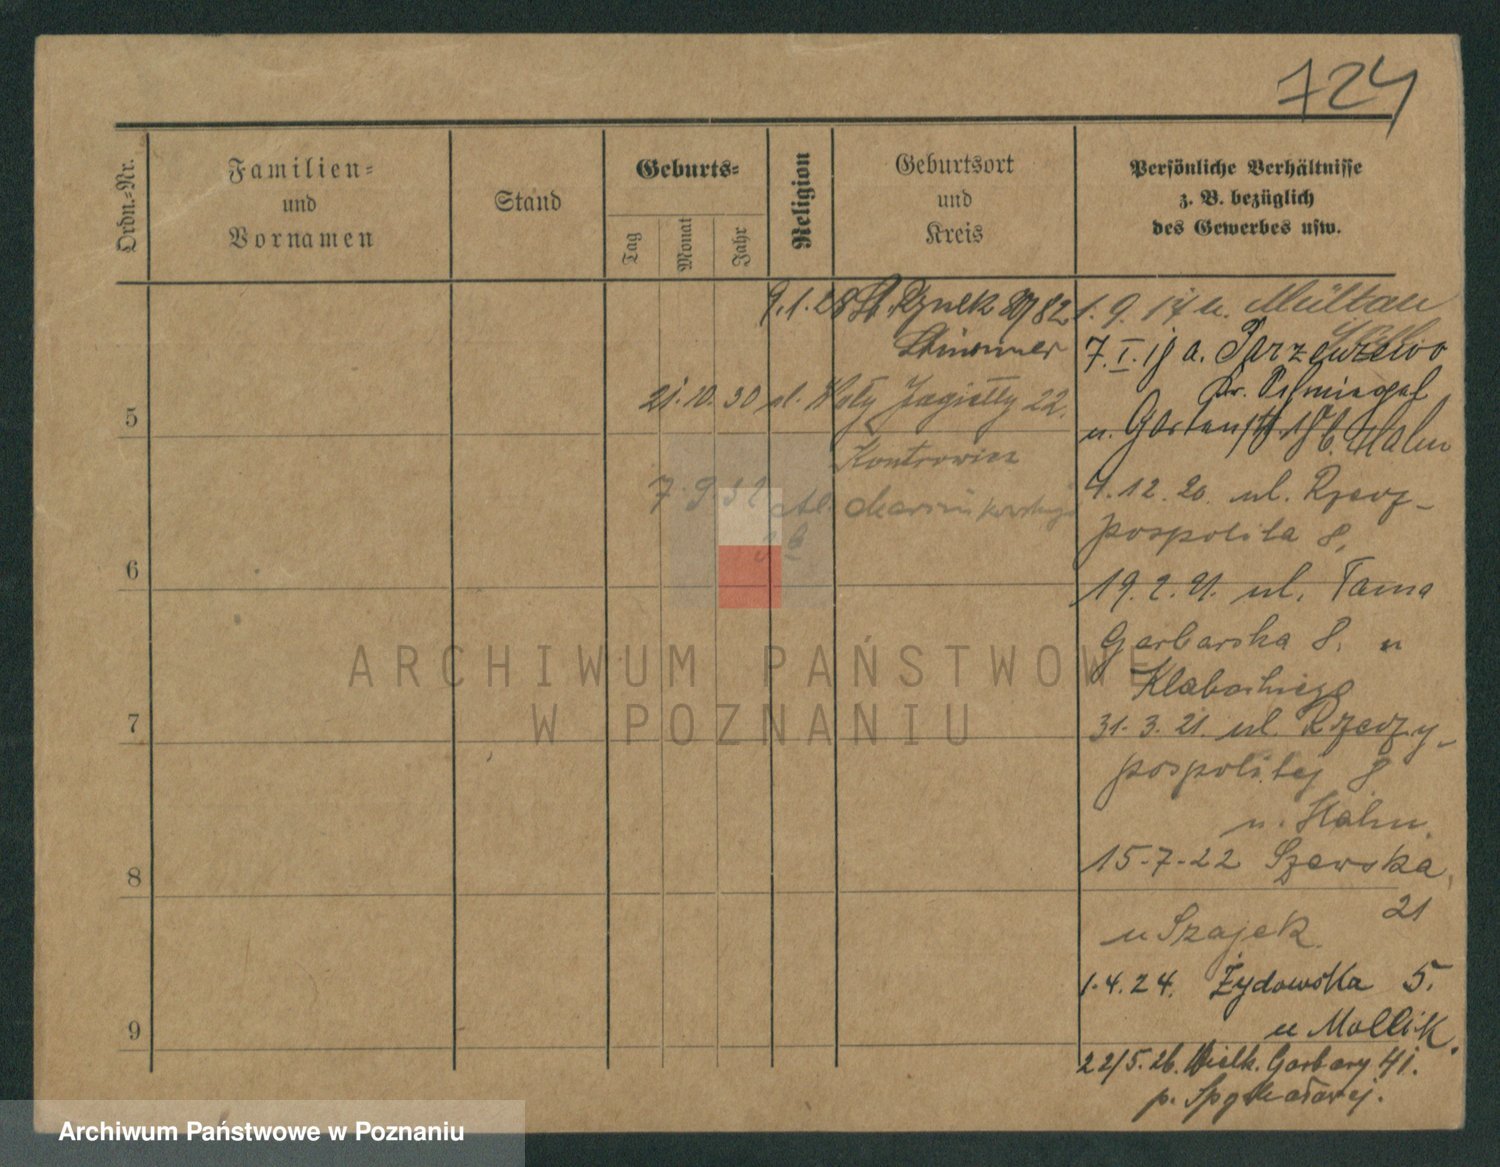 724
Ordn.-Nr.
Familien-
und
Vornamen
Stand
Geburts-
Tag
Monat
Jahr
Religion
Geburtsort
und
Kreis
Persönliche Verhältnisse
z. B. bezüglich
des Gewerbes usw.
9.1.28 St. Rynek 82
21.10.30 pl. Jagiełły 22.
Kontrowicz
7.9.32 Al. Marcinkowskiego
5
6
7
8
9
1.9.
7.I. a.
u. Gartenstr. b. Hahn
9.12.20. ul. Rzecz-
pospolita 8.
19.2.21. ul. Tama
Garbarska 8. u
31.3.21. ul. Rzeczy-
pospolitej 8
u. Hahn.
15-7-22 Szewska
21
u Szajek
1.4.24. Żydowska 5.
u Mollik.
22/5.26. Wielk. Garbary 41.
p.
ARCHIWUM PAŃSTWOWE
W POZNANIU
Archiwum Państwowe w Poznaniu